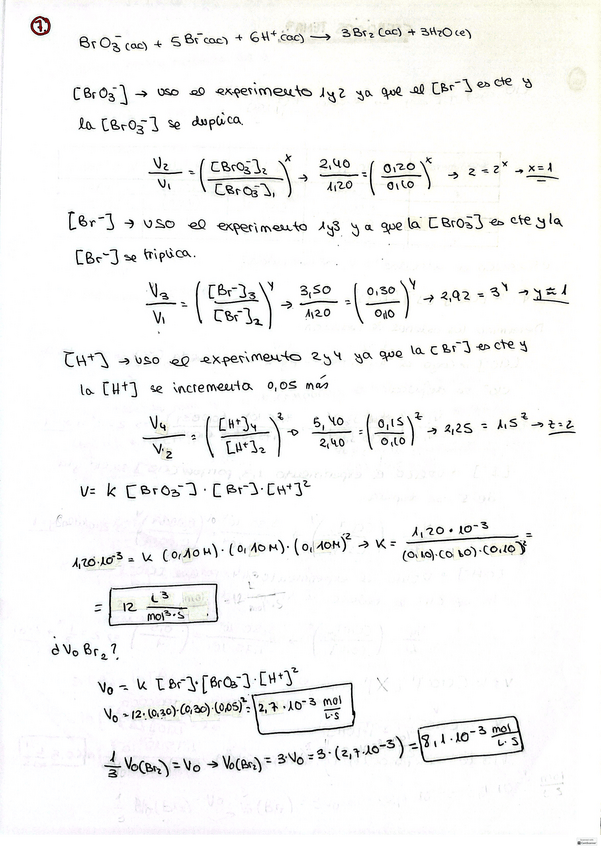 1.
BrO₃⁻(ac) + 5Br⁻(ac) + 6H⁺(ac) → 3Br₂(ac) + 3H₂O(e)
[BrO₃⁻] → uso el experimento 1y2 ya que el [Br⁻] es cte y
la [BrO₃⁻] se duplica
V₂/V₁ = ([BrO₃⁻]₂/[BrO₃⁻]₁)ˣ → 2,40/1,20 = (0,20/0,10)ˣ → 2 = 2ˣ → x=1
[Br⁻] → uso el experimento 1y3 ya que la [BrO₃⁻] es cte y la
[Br⁻] se triplica.
V₃/V₁ = ([Br⁻]₃/[Br⁻]₂)ʸ → 3,50/1,20 = (0,30/0,10)ʸ → 2,92 = 3ʸ → y≈1
[H⁺] → uso el experimento 2y4 ya que la [Br⁻] es cte y
la [H⁺] se incrementa 0,05 más
V₄/V₂ = ([H⁺]₄/[H⁺]₂)ᶻ → 5,40/2,40 = (0,15/0,10)ᶻ → 2,25 = 1,5ᶻ → z=2
V= k [BrO₃⁻]·[Br⁻]·[H⁺]²
1,20·10⁻³ = k (0,10M)·(0,10M)·(0,10M)² → k = 1,20·10⁻³/(0,10)·(0,10)·(0,10)² =
= 12 L³/mol³·s
¿V₀ Br₂?
V₀ = k [Br⁻]·[BrO₃⁻]·[H⁺]²
V₀ = 12·(0,30)·(0,30)·(0,05)² = 2,7·10⁻³ mol/L·s
1/3 V₀(Br₂) = V₀ → V₀(Br₂) = 3·V₀ = 3·(2,7·10⁻³) = 8,1·10⁻³ mol/L·s